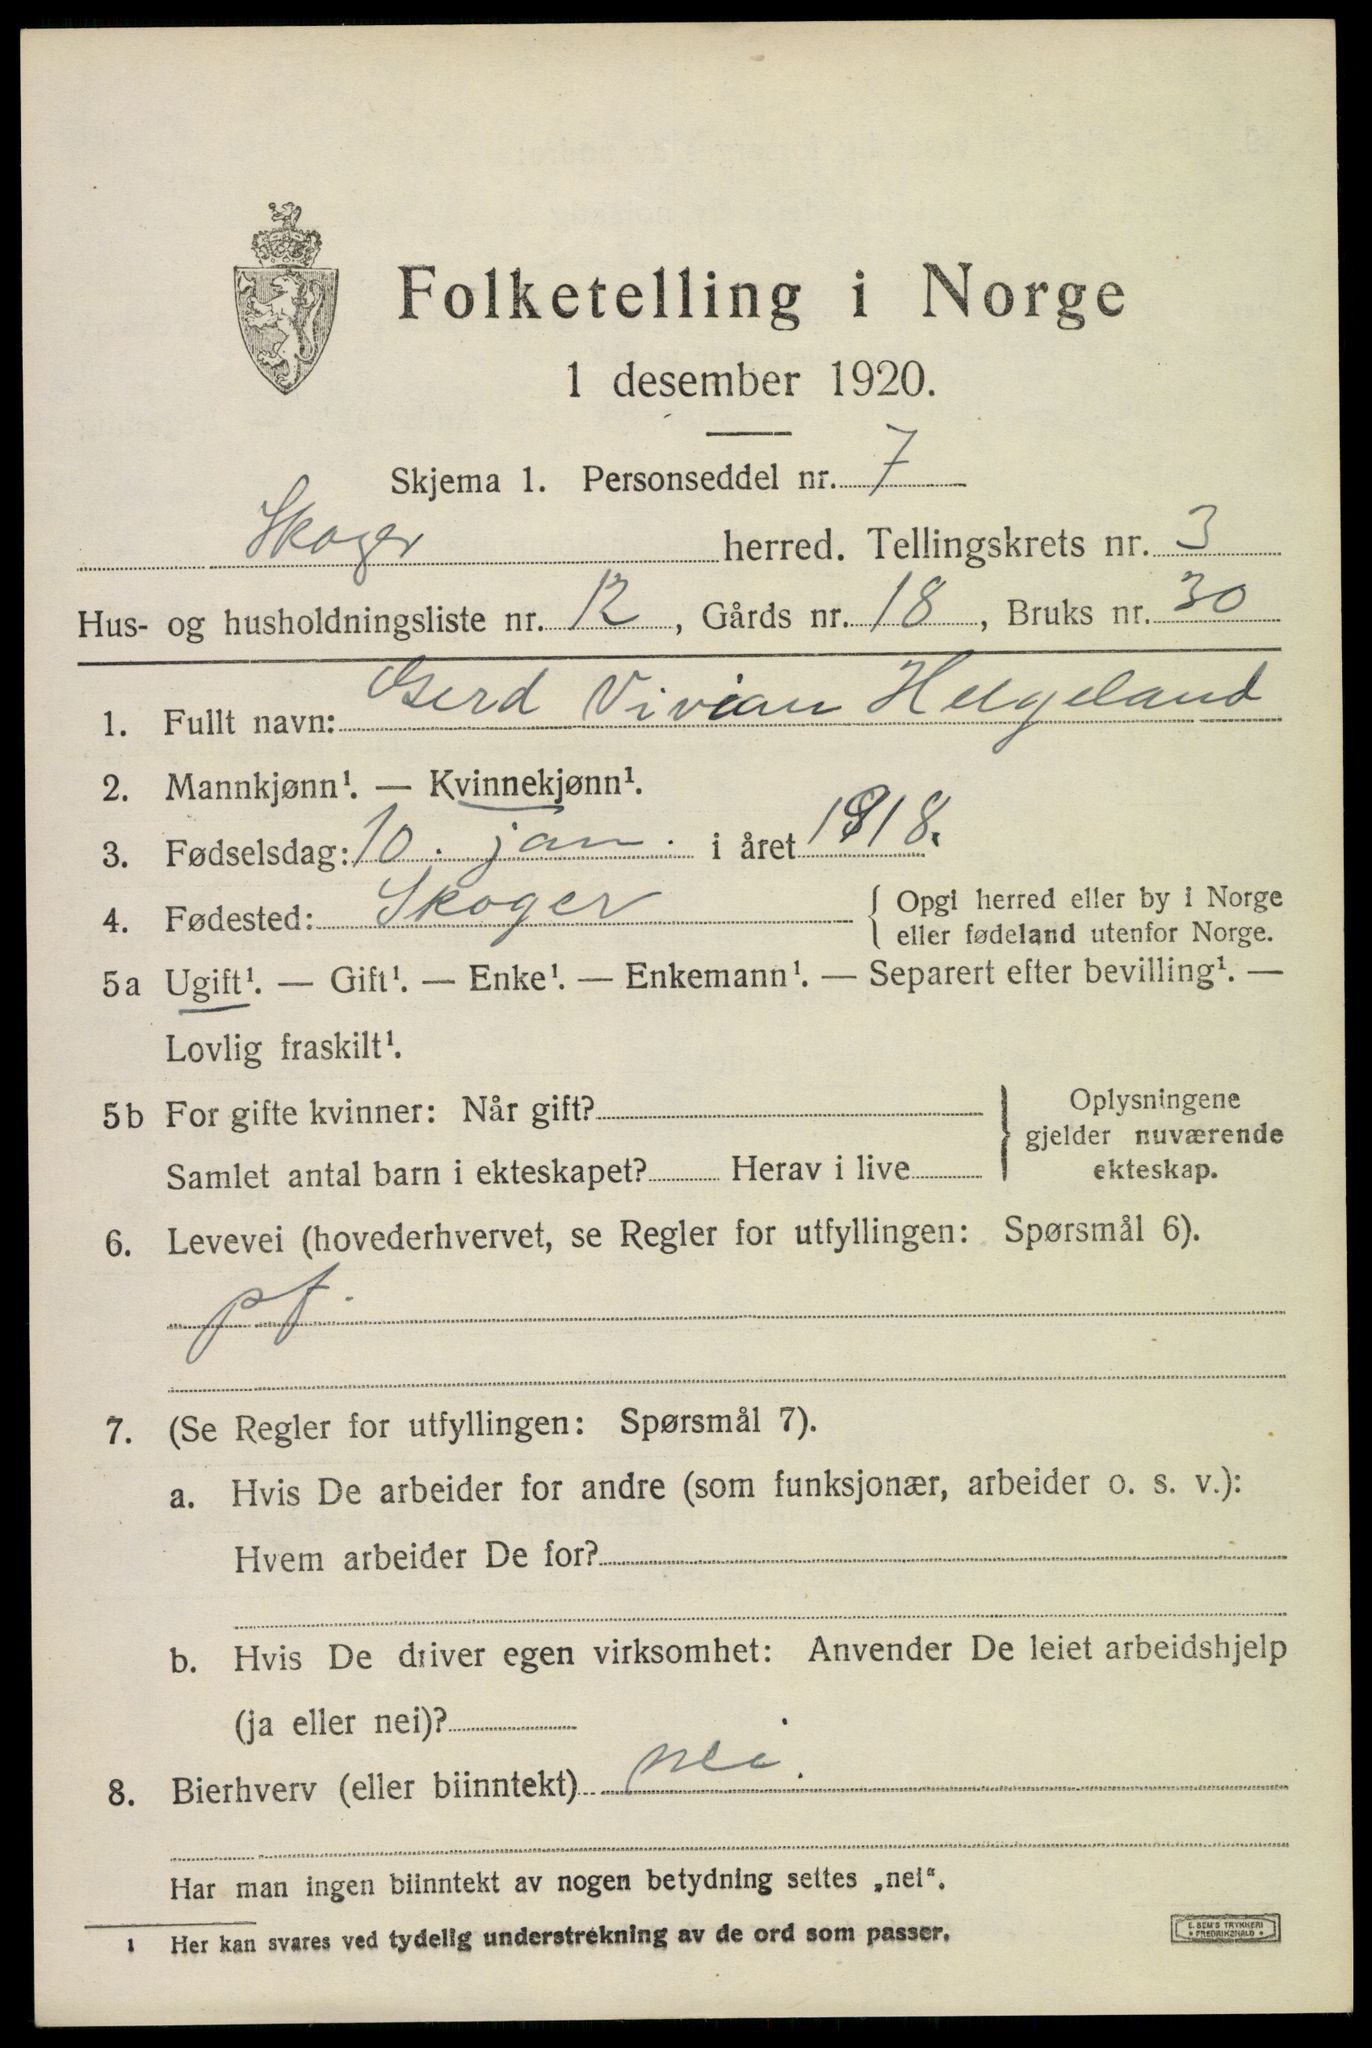 Folketelling i Norge
1 desember 1920.
Skjema 1. Personseddel nr. 7
Skoger herred. Tellingskrets nr. 3
Hus- og husholdningsliste nr. 12, Gårds nr. 18, Bruks nr. 30
1. Fullt navn: Gerd Vivian Helgeland
2. Mannkjønn¹. — Kvinnekjønn¹.
3. Fødselsdag: 10. jan. i året 1918.
4. Fødested: Skoger { Opgi herred eller by i Norge
eller fødeland utenfor Norge.
5a Ugift¹. — Gift¹. — Enke¹. — Enkemann¹. — Separert efter bevilling¹. —
Lovlig fraskilt¹.
5b For gifte kvinner: Når gift? } Oplysningene
gjelder nuværende
Samlet antal barn i ekteskapet? Herav i live ekteskap.
6. Levevei (hovederhvervet, se Regler for utfyllingen: Spørsmål 6).
pf.
7. (Se Regler for utfyllingen: Spørsmål 7).
a. Hvis De arbeider for andre (som funksjonær, arbeider o. s. v.):
Hvem arbeider De for?
b. Hvis De driver egen virksomhet: Anvender De leiet arbeidshjelp
(ja eller nei)?
8. Bierhverv (eller biinntekt) nei.
Har man ingen biinntekt av nogen betydning settes „nei“.
¹ Her kan svares ved tydelig understrekning av de ord som passer.
E. SEM'S TRYKKERI
• FREDRIKSHALD •